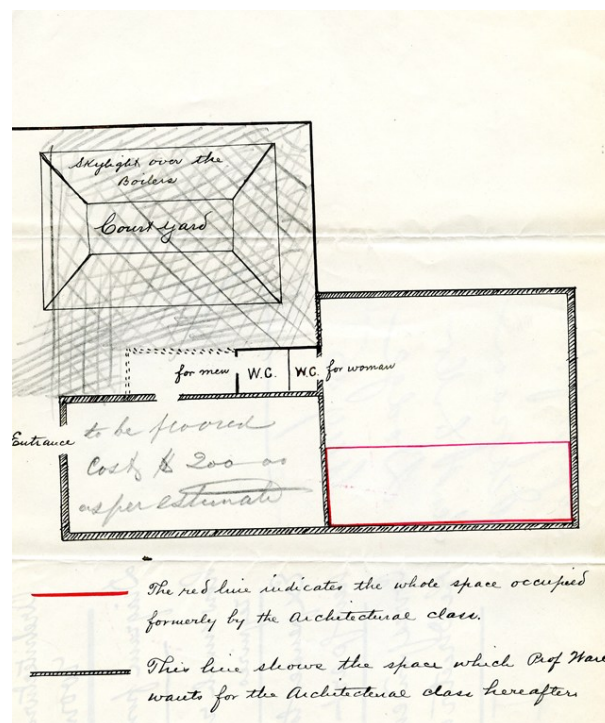 Skylight over the
Boilers
Court yard
for men
W.C.
W.C.
for woman
Entrance
to be floored
Cost $200 00
as per estimate
The red line indicates the whole space occupied
formerly by the Architectural class.
This line shows the space which Prof Ware
wants for the Architectural class hereafter